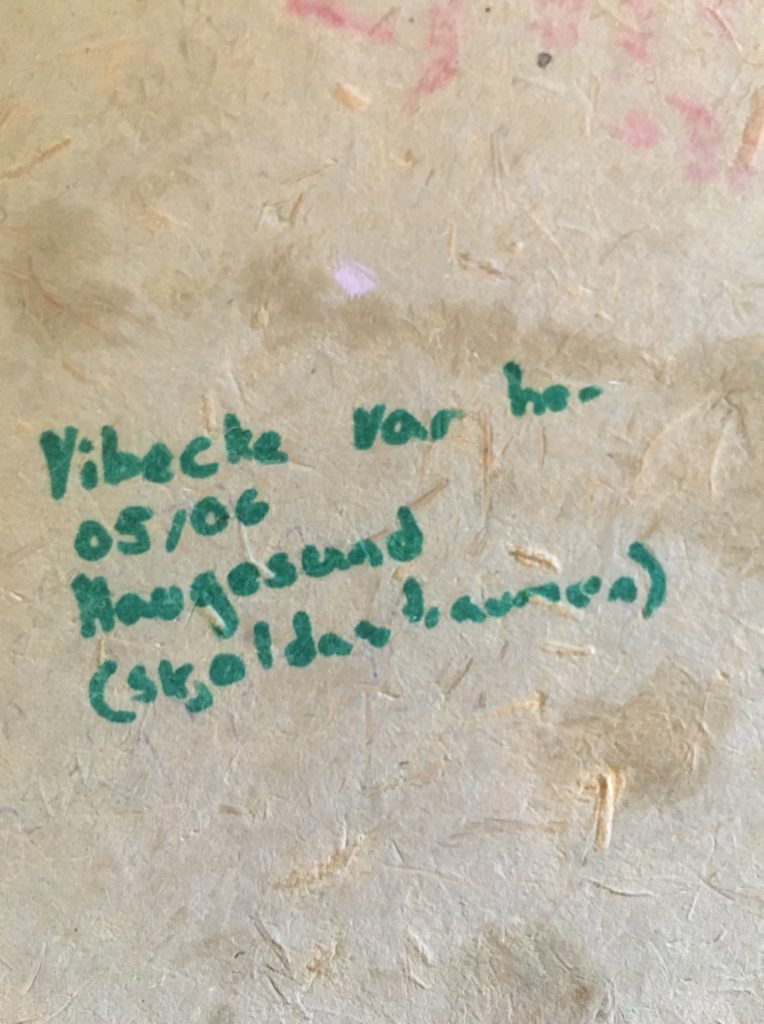 Vibecke var her
05/06
Haugesund
(skjoldastraumen)